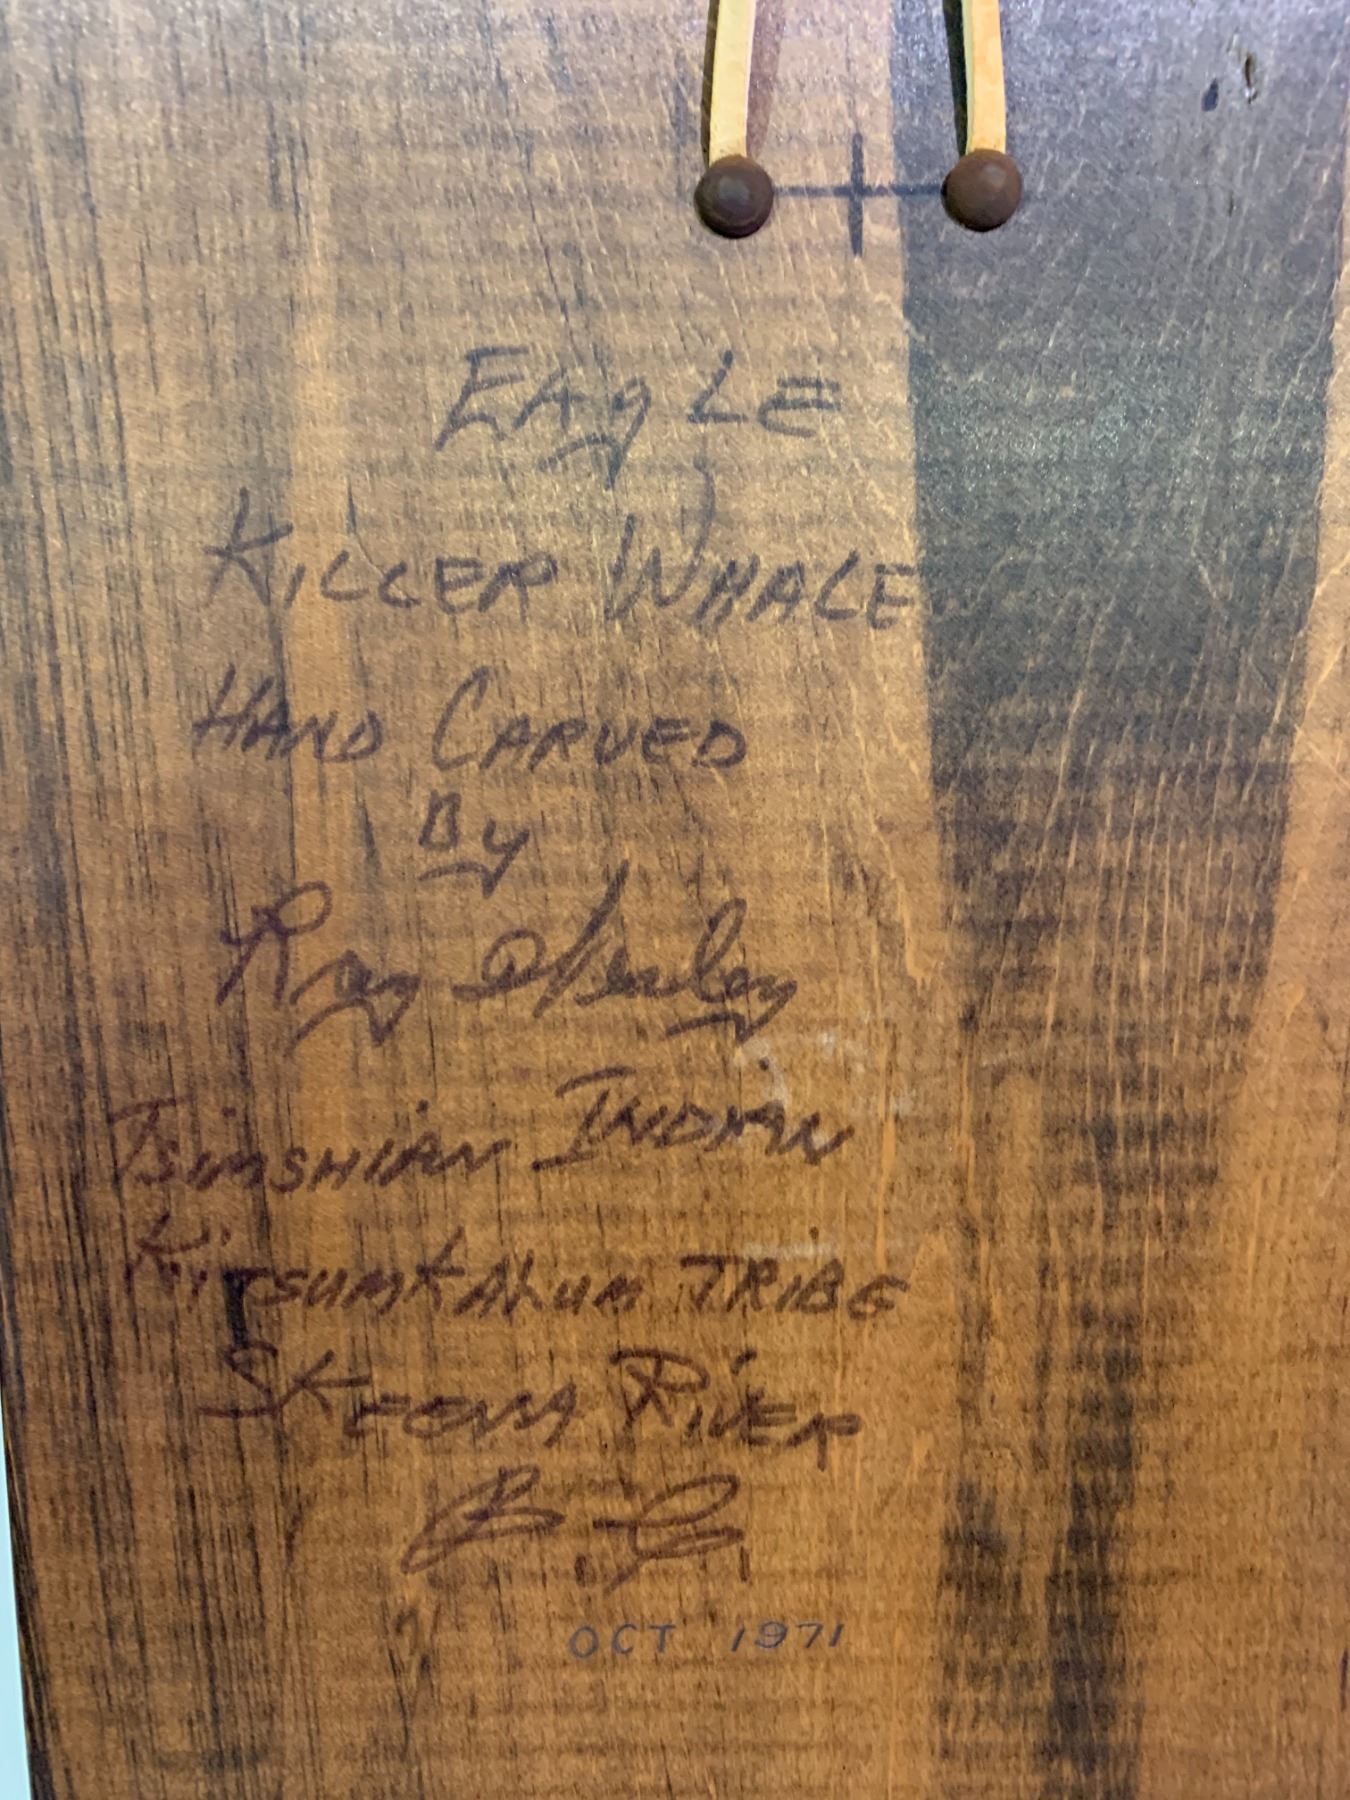 EAgLE
KILLER WHALE
HAND CARVED
By
Ray Henley
TSiMSHiAN INDIAN
KiTSUMKALUM TRIBE
SKEENA RiVER
B.C.
OCT 1971